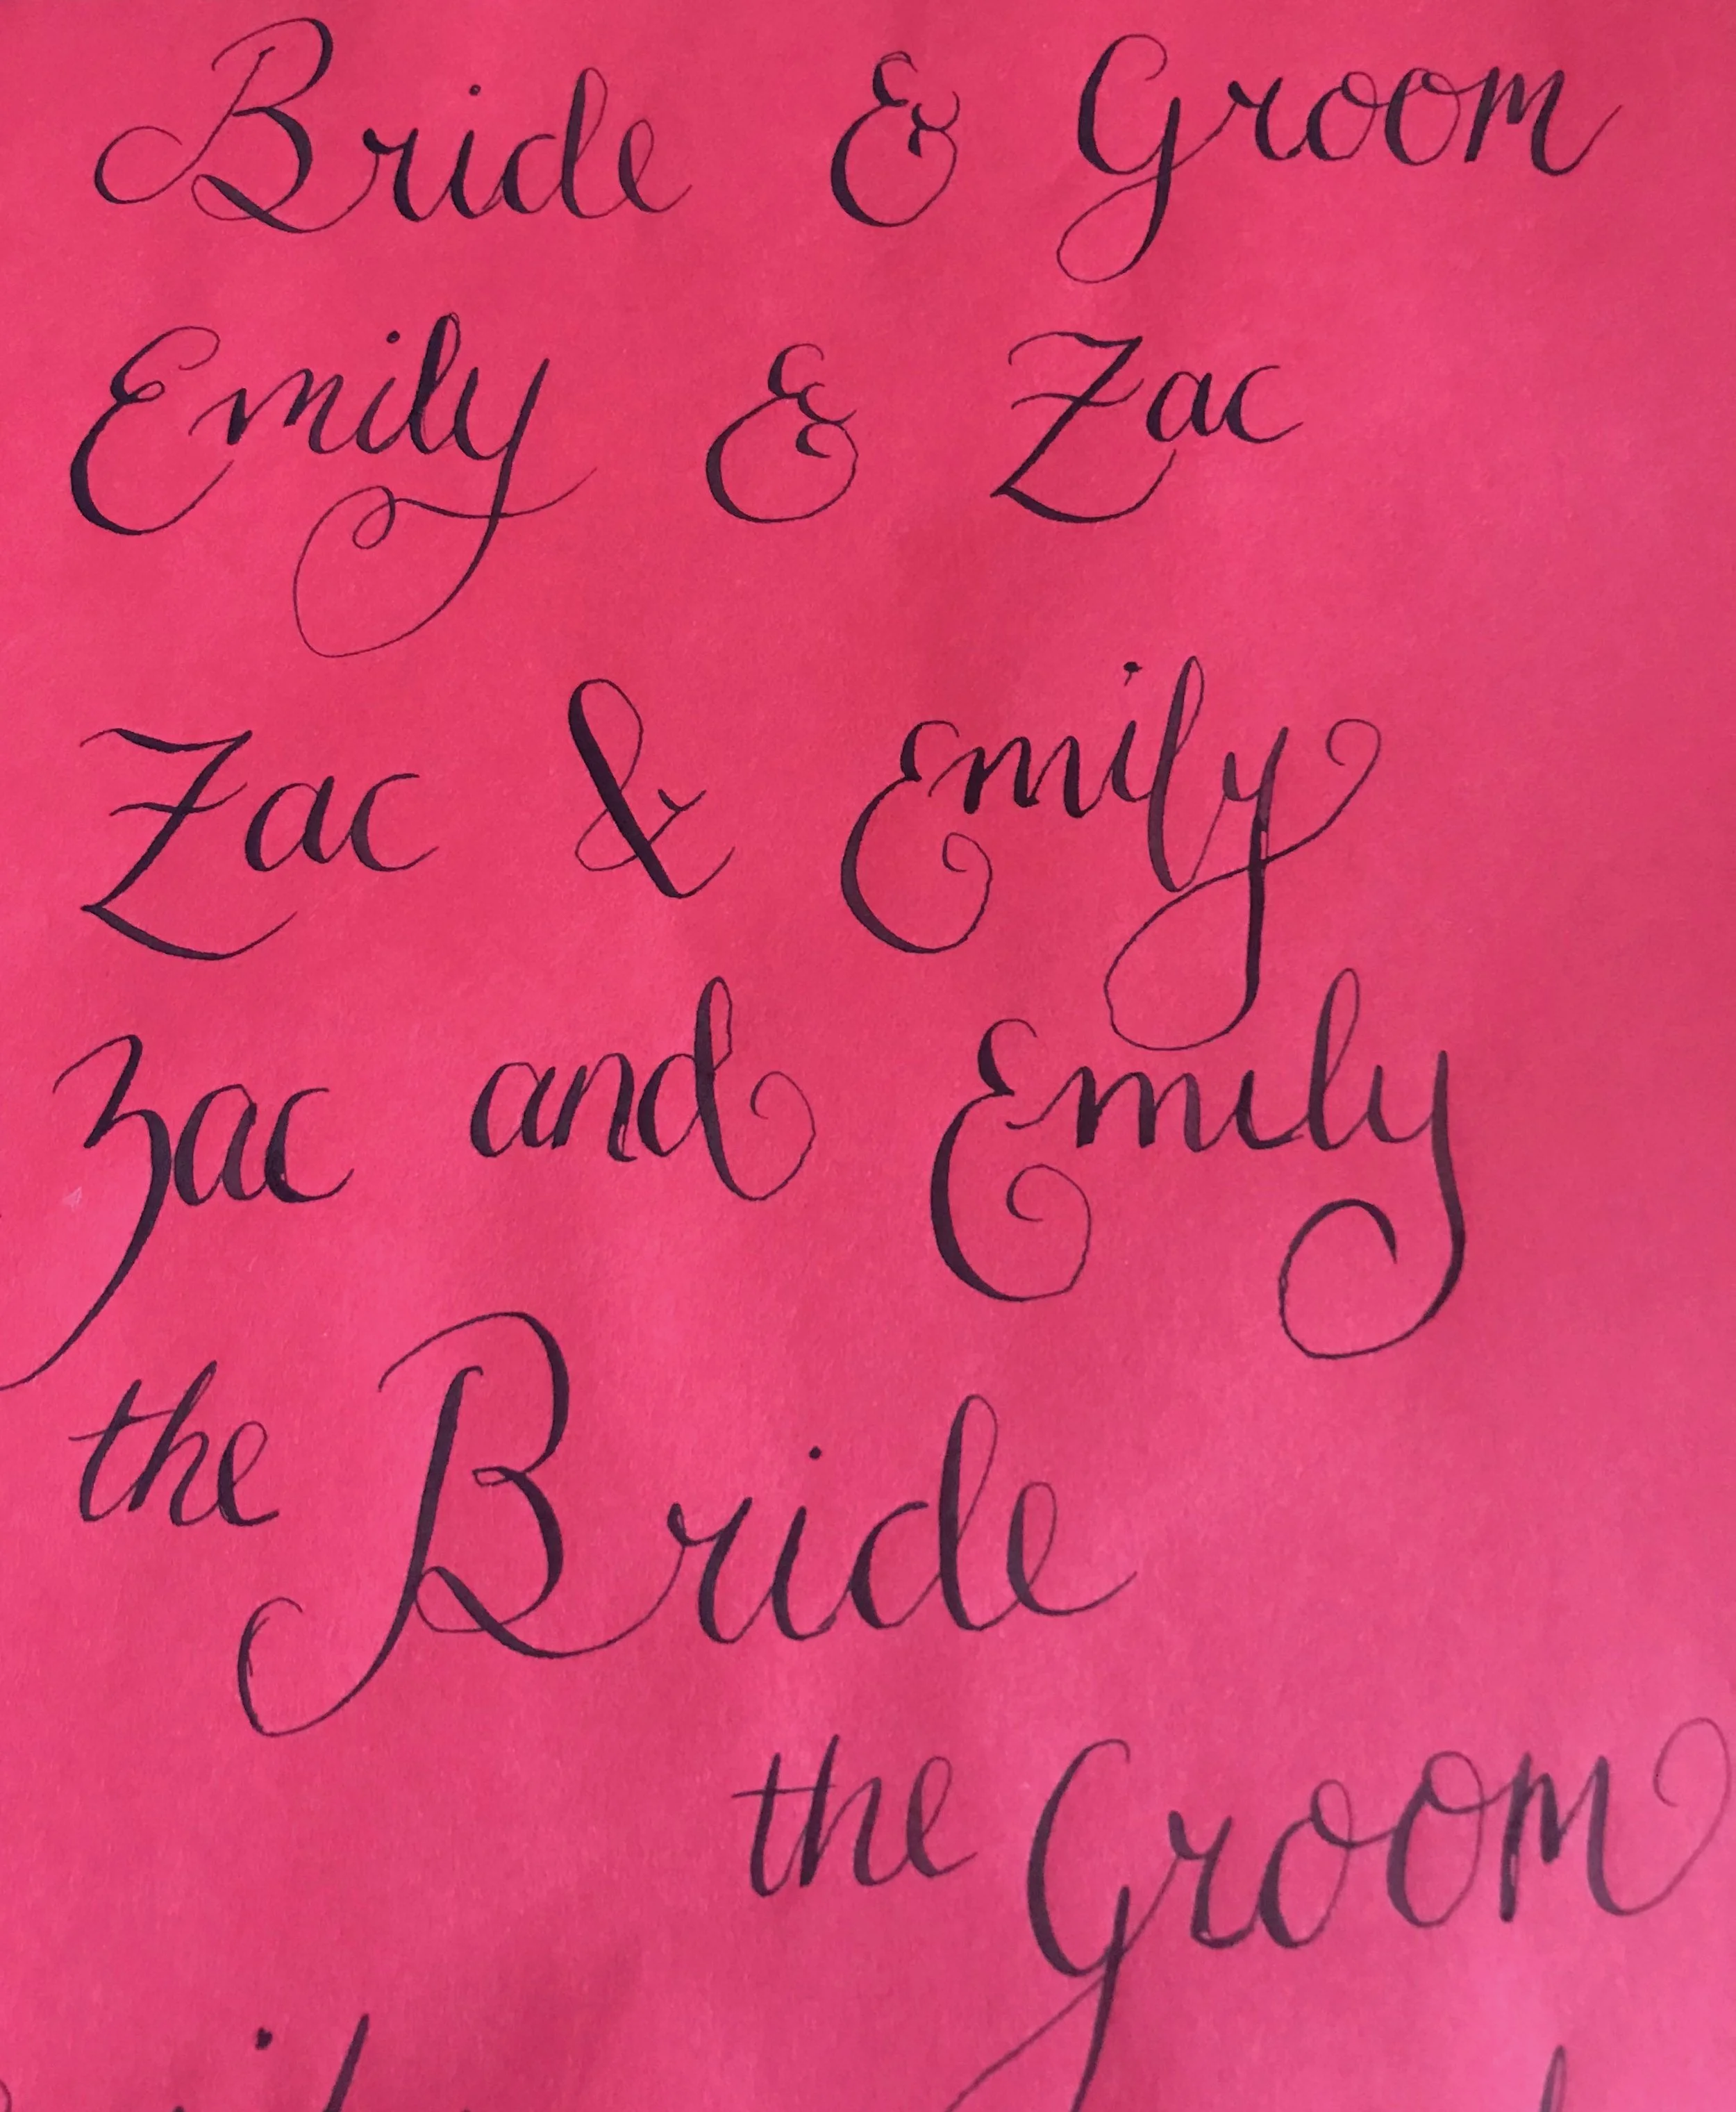 Bride & Groom
Emily & Zac
Zac & Emily
Zac and Emily
the Bride
the Groom